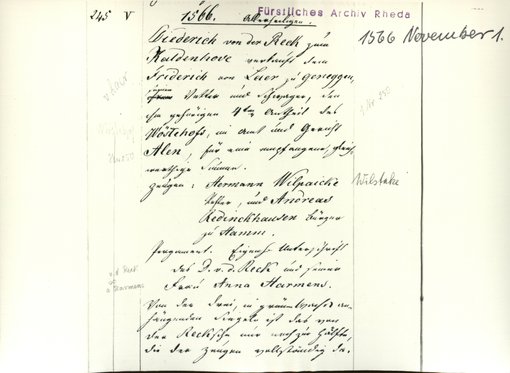 Fürstliches Archiv Rheda
245 V 1566. Allerheiligen.
1566 November 1.
Diederich von der Reck zum
Kaldenhove verkauft dem
Friderich von Laer zu Geneggen,
Vetter und Schwager, den
ihm gehörigen 4ten Antheil des
Wöstehofs, im Amt und Gericht
Alen, für eine empfangene, gleich
werthige Summe.
Zeugen: Hermann Wilpaiche
Wilstake
, und Andreas
Redinckhausen Bürger
zu Hamm.
Pergament. Eigenh. Unterschrift
des D. v. d. Reck und seiner
Frau Anna Harmens.
v. d. Reck
Harmens
Von den drei, in grünem Wachs an-
hängenden Siegeln ist das von
der Recksche nur noch zur Hälfte,
die der Zeugen vollständig da.